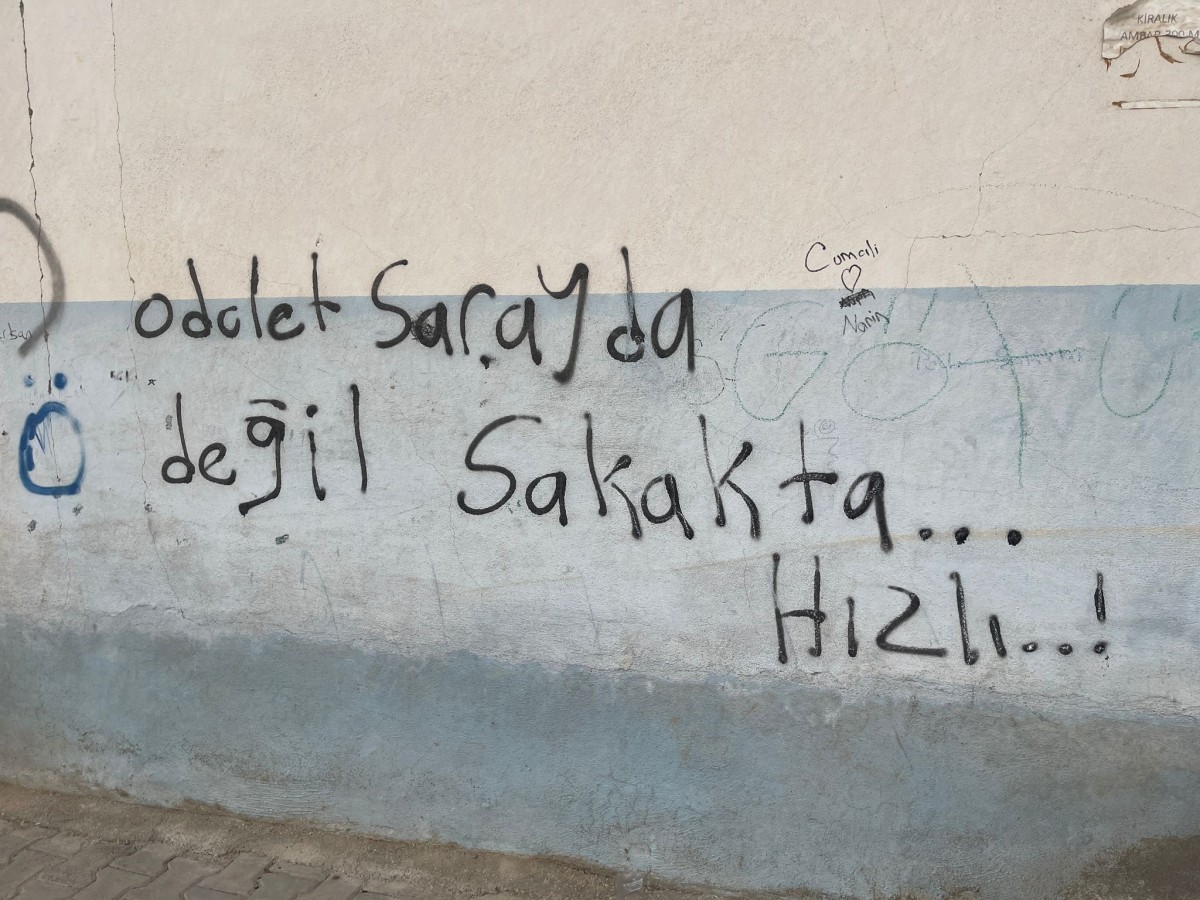 KİRALIK
AMBAR 300 M
Cumali
Narin
odalet Sarayda
Ö
değil Sakakta...
Hızlı...!